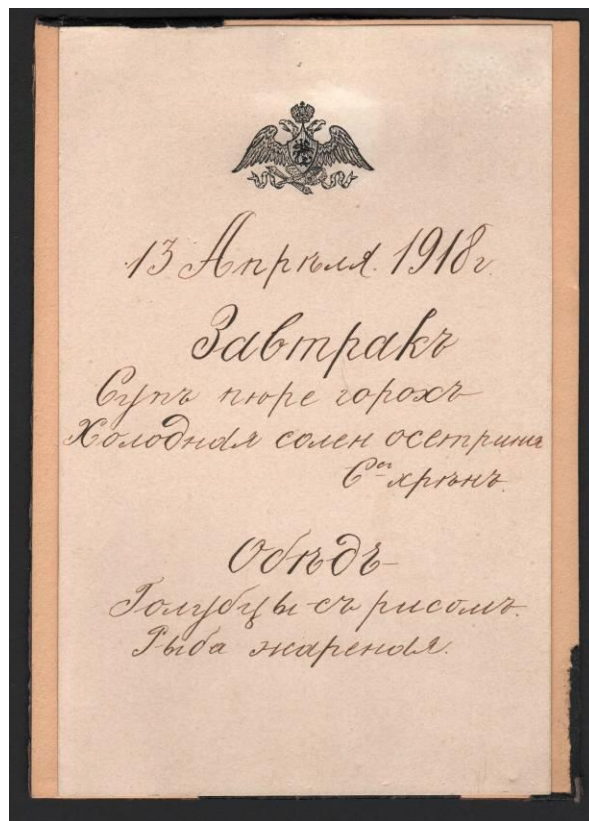 13 Апрѣля. 1918 г.
Завтракъ
Супъ пюре горохъ
Холодная солен осетрина
Соус хрѣнъ.
Обѣдъ
Голубцы съ рисомъ.
Рыба жареная.